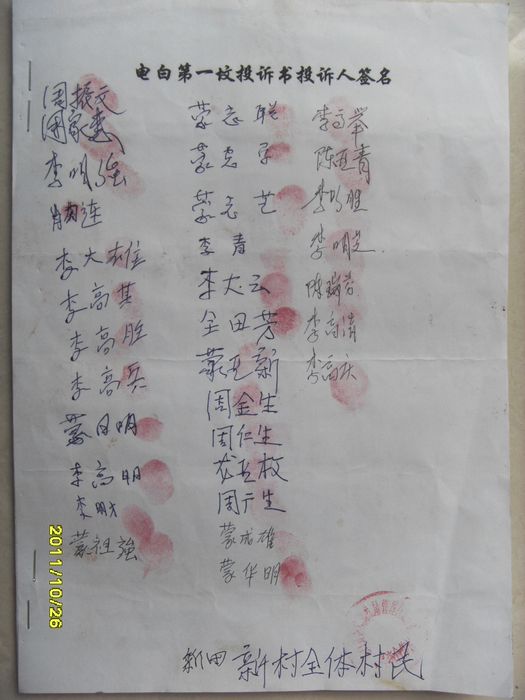 电白第一坟投诉书投诉人签名
周振文
周家惠
李明强
李大雄
李高其
李高胜
李高兵
蒙日明
李高明
李财
蒙祖強
蒙志联
蒙志
蒙志艺
李青
李大云
全田芳
蒙亚新
周金生
周仁生
龙亚枚
周广生
蒙成雄
蒙华明
李高举
陈亚青
李明
陈瑞芳
李高清
李高庆
新田新村全体村民
2011/10/26